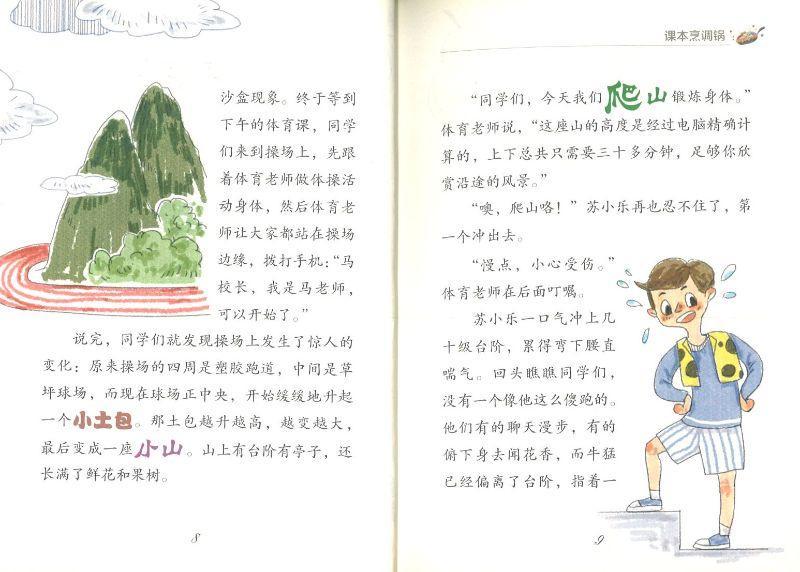 沙盒现象。终于等到
下午的体育课，同学
们来到操场上，先跟
着体育老师做体操活
动身体，然后体育老
师让大家都站在操场
边缘，拨打手机：“马
校长，我是马老师，
可以开始了。”
说完，同学们就发现操场上发生了惊人的
变化：原来操场的四周是塑胶跑道，中间是草
坪球场，而现在球场正中央，开始缓缓地升起
一个小土包。那土包越升越高，越变越大，
最后变成一座小山。山上有台阶有亭子，还
长满了鲜花和果树。
8
课本烹调锅
“同学们，今天我们爬山锻炼身体。”
体育老师说，“这座山的高度是经过电脑精确计
算的，上下总共只需要三十多分钟，足够你欣
赏沿途的风景。”
“噢，爬山咯！”苏小乐再也忍不住了，第
一个冲出去。
“慢点，小心受伤。”
体育老师在后面叮嘱。
苏小乐一口气冲上几
十级台阶，累得弯下腰直
喘气。回头瞧瞧同学们，
没有一个像他这么傻跑的。
他们有的聊天漫步，有的
俯下身去闻花香，而牛猛
已经偏离了台阶，指着一
9